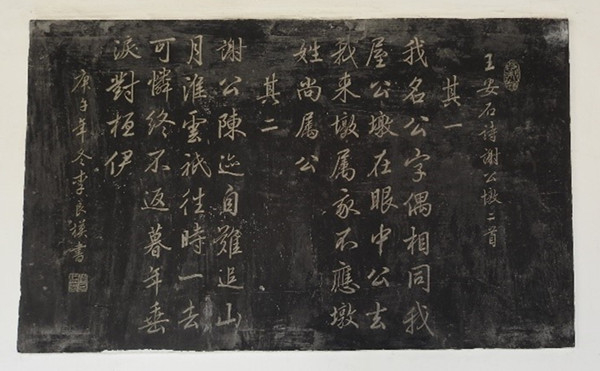 王安石诗謝公墩二首
其一
我名公字偶相同我
屋公墩在眼中公去
我来墩属我不應墩
姓尚属公
其二
謝公陳迹自難追山
月淮雲祇往時一去
可憐終不返暮年垂
淚對桓伊
庚午年冬李良樸書